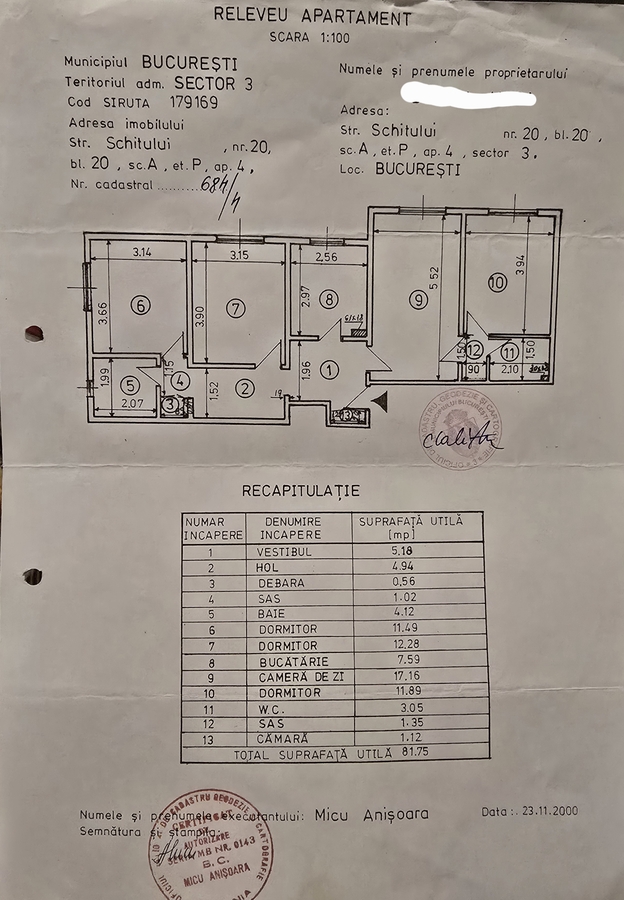 RELEVEU APARTAMENT
SCARA 1:100
Municipiul BUCUREȘTI
Teritoriul adm. SECTOR 3
Cod SIRUTA 179169
Adresa imobilului
Str. Schitului , nr. 20,
bl. 20 , sc. A , et. P , ap. 4 ,
Nr. cadastral .......... 684/4
Numele și prenumele proprietarului
Adresa:
Str. Schitului nr. 20 , bl. 20 ,
sc. A , et. P , ap. 4 , sector 3 .
Loc. BUCUREȘTI
3.14
3.15
2.56
5.52
3.94
3.66
3.90
2.97
6
7
8
9
10
1.99
1.15
1.52
1.96
1.50
1.50
5
4
3
2
1
12
11
2.07
.90
2.10
RECAPITULAȚIE
NUMAR INCAPERE DENUMIRE INCAPERE SUPRAFAȚĂ UTILĂ [mp]
1 VESTIBUL 5.18
2 HOL 4.94
3 DEBARA 0,56
4 SAS 1.02
5 BAIE 4.12
6 DORMITOR 11.49
7 DORMITOR 12.28
8 BUCĂTĂRIE 7.59
9 CAMERĂ DE ZI 17.16
10 DORMITOR 11.89
11 W.C. 3.05
12 SAS 1.35
13 CĂMARĂ 1.12
TOTAL SUPRAFAȚĂ UTILĂ 81.75
Numele și prenumele executantului: Micu Anișoara Data : . 23.11.2000
Semnătura și stampila:
CERTIFICAT
DE
AUTORIZARE
SERIA MB NR. 0143
B. C.
MICU ANIȘOARA